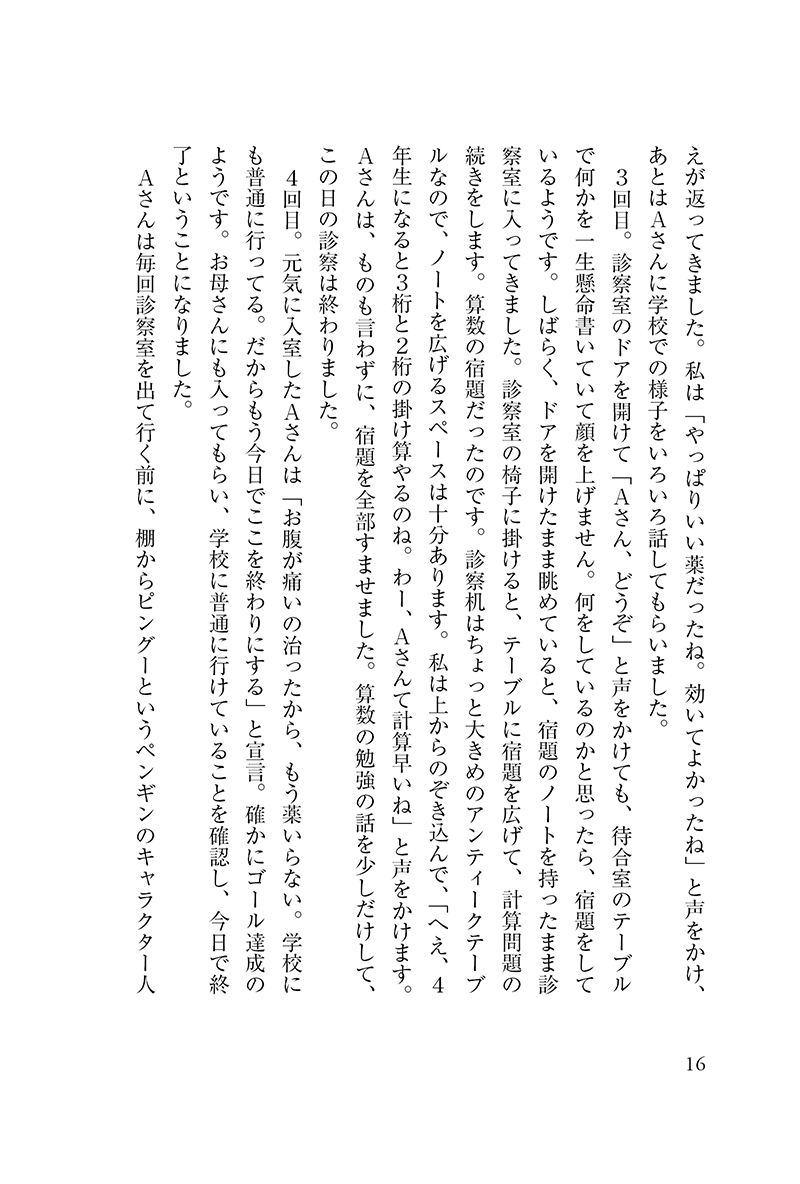 えが返ってきました。私は「やっぱりいい薬だったね。効いてよかったね」と声をかけ、
あとはAさんに学校での様子をいろいろ話してもらいました。
3回目。診察室のドアを開けて「Aさん、どうぞ」と声をかけても、待合室のテーブル
で何かを一生懸命書いていて顔を上げません。何をしているのかと思ったら、宿題をして
いるようです。しばらく、ドアを開けたまま眺めていると、宿題のノートを持ったまま診
察室に入ってきました。診察室の椅子に掛けると、テーブルに宿題を広げて、計算問題の
続きをします。算数の宿題だったのです。診察机はちょっと大きめのアンティークテーブ
ルなので、ノートを広げるスペースは十分あります。私は上からのぞき込んで、「へえ、4
年生になると3桁と2桁の掛け算やるのね。わー、Aさんて計算早いね」と声をかけます。
Aさんは、ものも言わずに、宿題を全部すませました。算数の勉強の話を少しだけして、
この日の診察は終わりました。
4回目。元気に入室したAさんは「お腹が痛いの治ったから、もう薬いらない。学校に
も普通に行ってる。だからもう今日でここを終わりにする」と宣言。確かにゴール達成の
ようです。お母さんにも入ってもらい、学校に普通に行けていることを確認し、今日で終
了ということになりました。
Aさんは毎回診察室を出て行く前に、棚からピングーというペンギンのキャラクター人
16